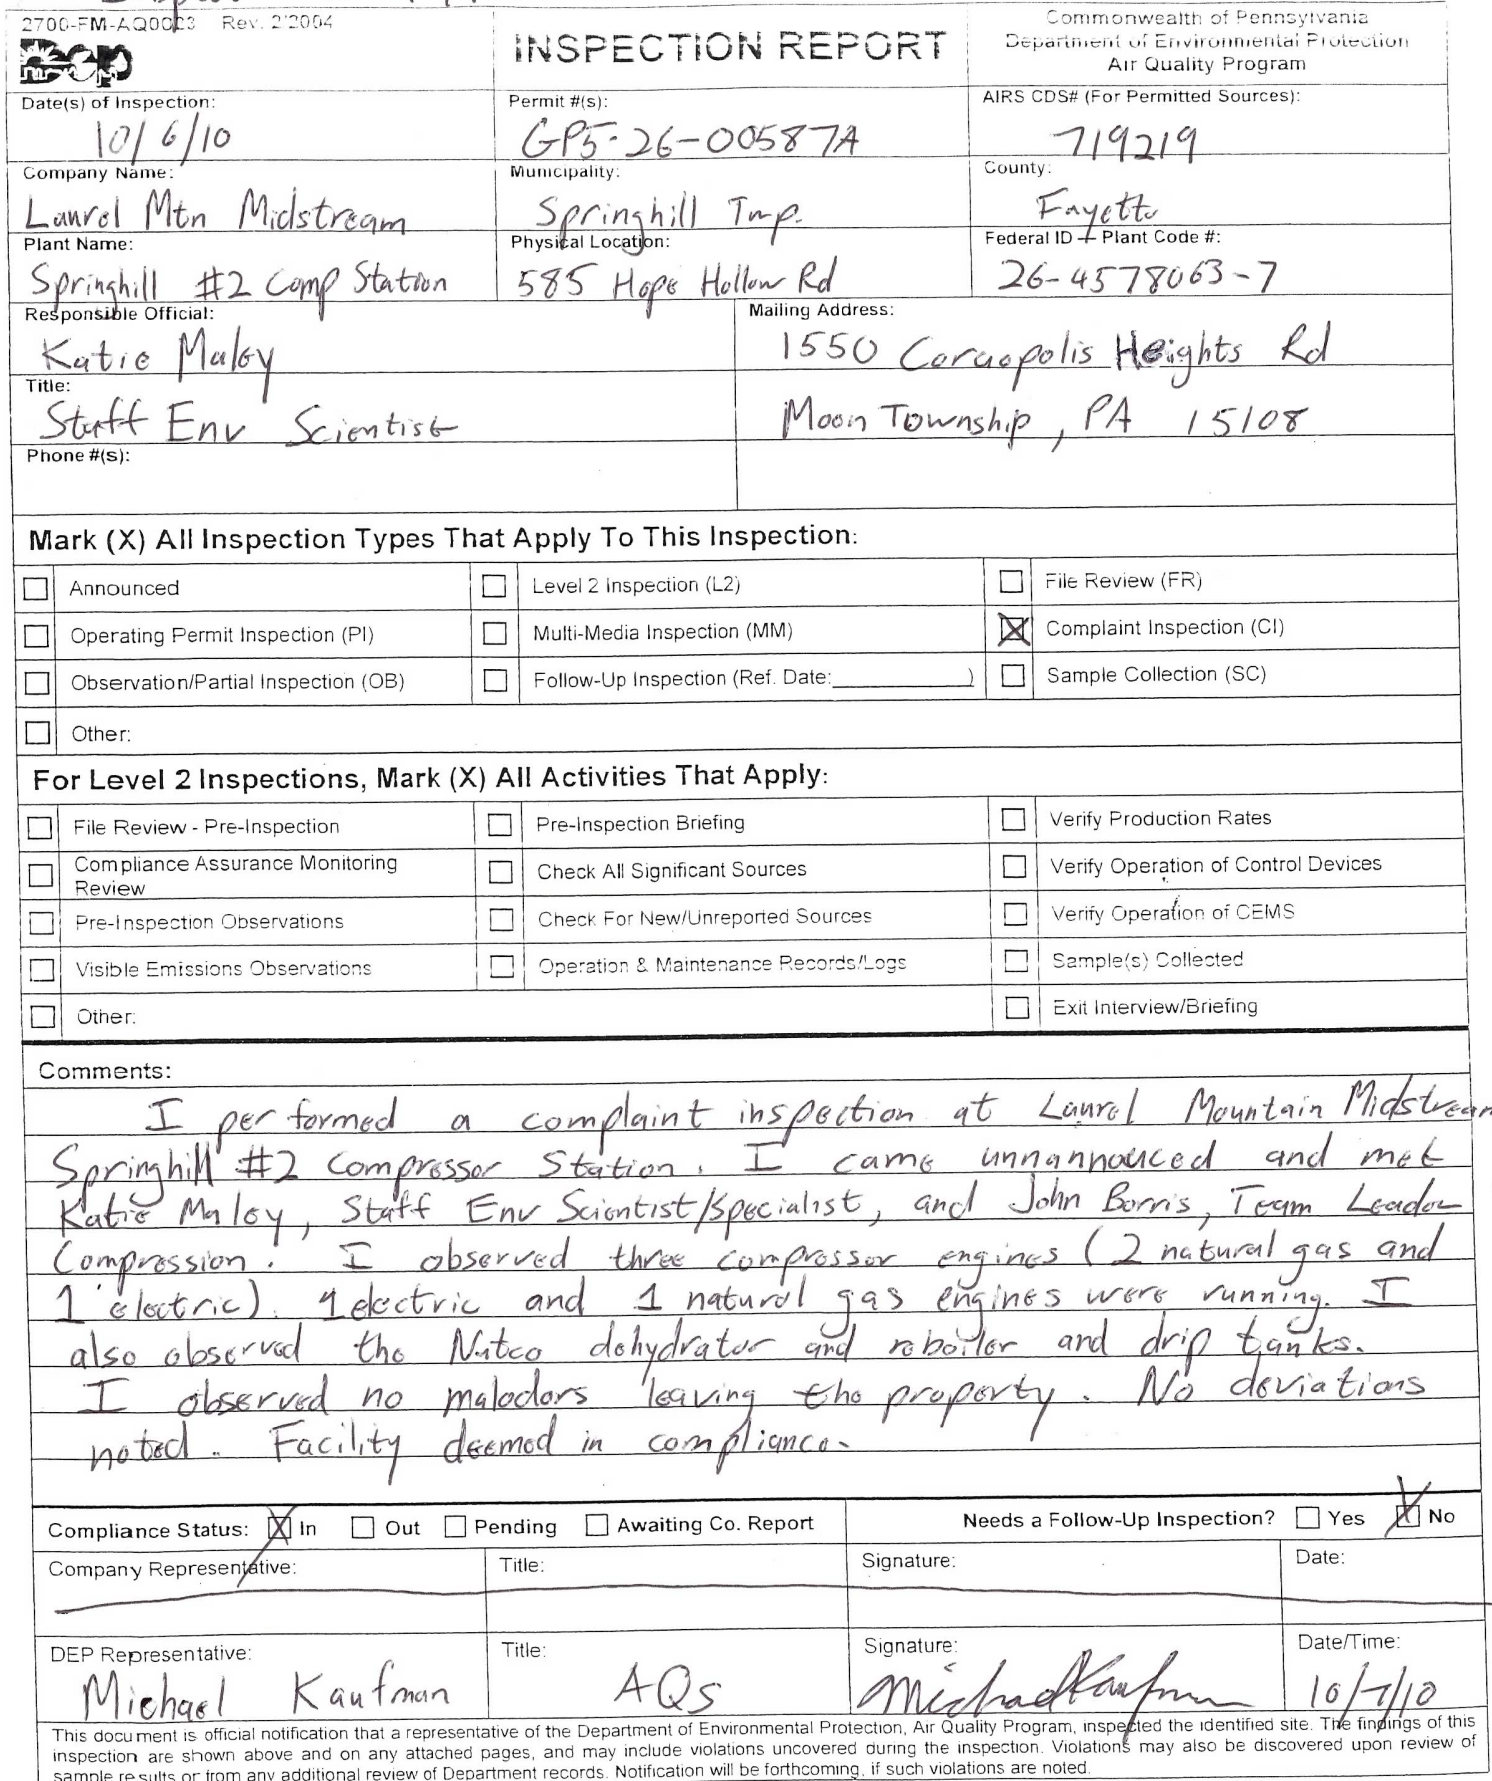 2700-FM-AQ0023 Rev. 2/2004
dep
INSPECTION REPORT
Commonwealth of Pennsylvania
Department of Environmental Protection
Air Quality Program
Date(s) of Inspection:
10/6/10
Permit #(s):
GP5-26-00587A
AIRS CDS# (For Permitted Sources):
719219
Company Name:
Laurel Mtn Midstream
Municipality:
Springhill Twp.
County:
Fayette
Plant Name:
Springhill #2 Comp Station
Physical Location:
585 Hope Hollow Rd
Federal ID + Plant Code #:
26-4578063-7
Responsible Official:
Katie Maloy
Mailing Address:
1550 Coraopolis Heights Rd
Title:
Staff Env Scientist
Moon Township, PA 15108
Phone #(s):
Mark (X) All Inspection Types That Apply To This Inspection:
Announced
Level 2 Inspection (L2)
File Review (FR)
Operating Permit Inspection (PI)
Multi-Media Inspection (MM)
X Complaint Inspection (CI)
Observation/Partial Inspection (OB)
Follow-Up Inspection (Ref. Date:____________)
Sample Collection (SC)
Other:
For Level 2 Inspections, Mark (X) All Activities That Apply:
File Review - Pre-Inspection
Pre-Inspection Briefing
Verify Production Rates
Compliance Assurance Monitoring
Review
Check All Significant Sources
Verify Operation of Control Devices
Pre-Inspection Observations
Check For New/Unreported Sources
Verify Operation of CEMS
Visible Emissions Observations
Operation & Maintenance Records/Logs
Sample(s) Collected
Other:
Exit Interview/Briefing
Comments:
I performed a complaint inspection at Laurel Mountain Midstream
Springhill #2 Compressor Station. I came unnannouced and met
Katie Maloy, Staff Env Scientist/Specialist, and John Borris, Team Leader
Compression. I observed three compressor engines (2 natural gas and
1 electric). 1 electric and 1 natural gas engines were running. I
also observed the Natco dehydrator and reboiler and drip tanks.
I observed no malodors leaving the property. No deviations
noted. Facility deemed in compliance.
Compliance Status: X In Out Pending Awaiting Co. Report
Needs a Follow-Up Inspection? Yes X No
Company Representative:
Title:
Signature:
Date:
DEP Representative:
Michael Kaufman
Title:
AQS
Signature:
Michael Kaufman
Date/Time:
10/7/10
This document is official notification that a representative of the Department of Environmental Protection, Air Quality Program, inspected the identified site. The findings of this
inspection are shown above and on any attached pages, and may include violations uncovered during the inspection. Violations may also be discovered upon review of
sample results or from any additional review of Department records. Notification will be forthcoming, if such violations are noted.